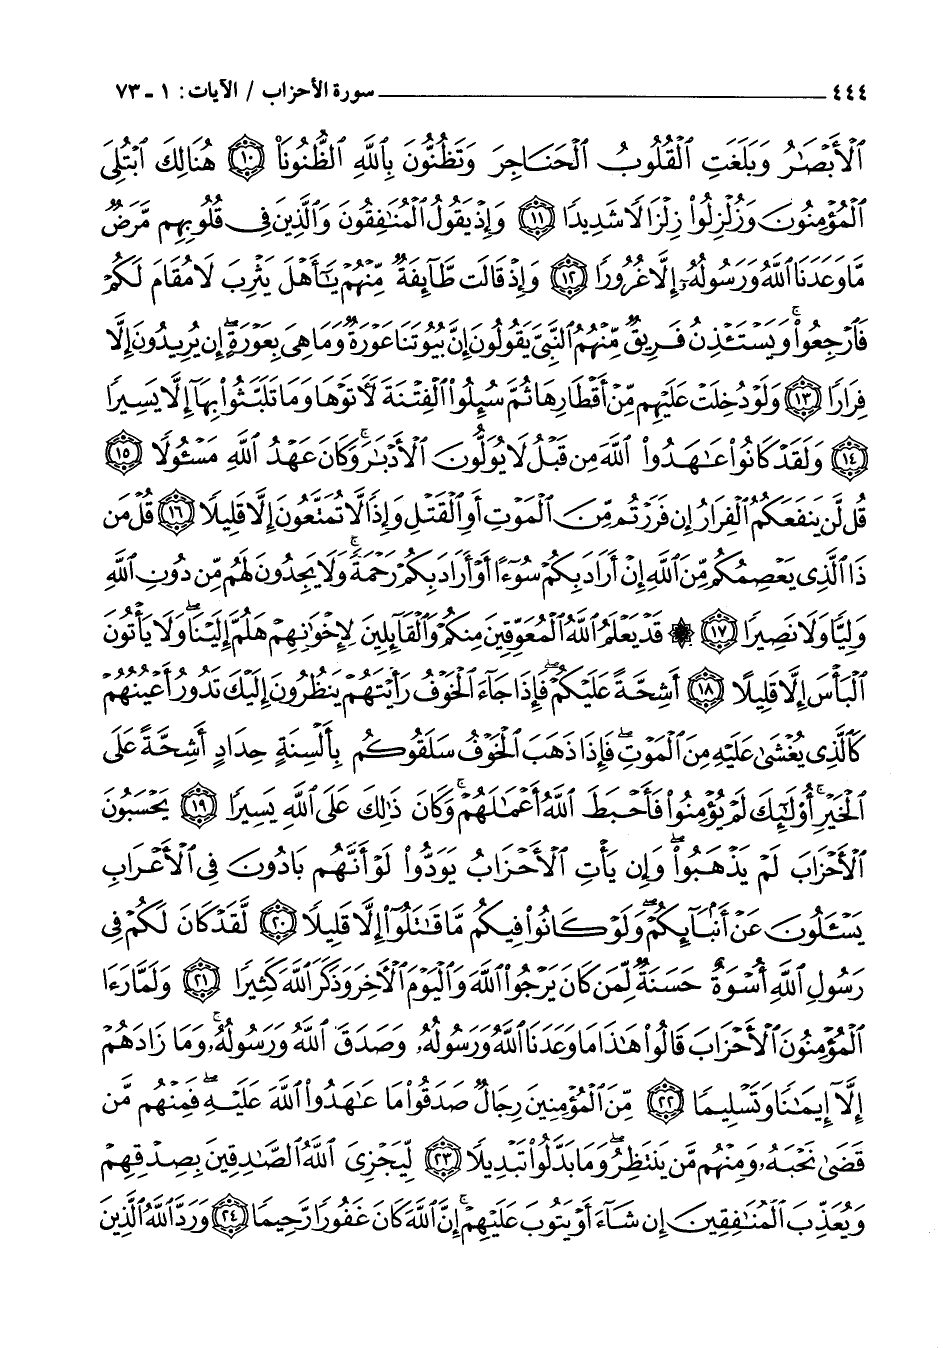 ٤٤٤ ـــــــــــــــــ سورة الأحزاب / الآيات: ١ ـ ٧٣
ٱلْأَبْصَٰرُ وَبَلَغَتِ ٱلْقُلُوبُ ٱلْحَنَاجِرَ وَتَظُنُّونَ بِٱللَّهِ ٱلظُّنُونَا۠ ﴿١٠﴾ هُنَالِكَ ٱبْتُلِىَ
ٱلْمُؤْمِنُونَ وَزُلْزِلُوا۟ زِلْزَالًا شَدِيدًا ﴿١١﴾ وَإِذْ يَقُولُ ٱلْمُنَٰفِقُونَ وَٱلَّذِينَ فِى قُلُوبِهِم مَّرَضٌ
مَّا وَعَدَنَا ٱللَّهُ وَرَسُولُهُۥٓ إِلَّا غُرُورًا ﴿١٢﴾ وَإِذْ قَالَت طَّآئِفَةٌ مِّنْهُمْ يَٰٓأَهْلَ يَثْرِبَ لَا مُقَامَ لَكُمْ
فَٱرْجِعُوا۟ ۚ وَيَسْتَـْٔذِنُ فَرِيقٌ مِّنْهُمُ ٱلنَّبِىَّ يَقُولُونَ إِنَّ بُيُوتَنَا عَوْرَةٌ وَمَا هِىَ بِعَوْرَةٍ ۖ إِن يُرِيدُونَ إِلَّا
فِرَارًا ﴿١٣﴾ وَلَوْ دُخِلَتْ عَلَيْهِم مِّنْ أَقْطَارِهَا ثُمَّ سُئِلُوا۟ ٱلْفِتْنَةَ لَءَاتَوْهَا وَمَا تَلَبَّثُوا۟ بِهَآ إِلَّا يَسِيرًا
﴿١٤﴾ وَلَقَدْ كَانُوا۟ عَٰهَدُوا۟ ٱللَّهَ مِن قَبْلُ لَا يُوَلُّونَ ٱلْأَدْبَٰرَ ۚ وَكَانَ عَهْدُ ٱللَّهِ مَسْـُٔولًا ﴿١٥﴾
قُل لَّن يَنفَعَكُمُ ٱلْفِرَارُ إِن فَرَرْتُم مِّنَ ٱلْمَوْتِ أَوِ ٱلْقَتْلِ وَإِذًا لَّا تُمَتَّعُونَ إِلَّا قَلِيلًا ﴿١٦﴾ قُلْ مَن
ذَا ٱلَّذِى يَعْصِمُكُم مِّنَ ٱللَّهِ إِنْ أَرَادَ بِكُمْ سُوٓءًا أَوْ أَرَادَ بِكُمْ رَحْمَةً ۚ وَلَا يَجِدُونَ لَهُم مِّن دُونِ ٱللَّهِ
وَلِيًّا وَلَا نَصِيرًا ﴿١٧﴾ ۞ قَدْ يَعْلَمُ ٱللَّهُ ٱلْمُعَوِّقِينَ مِنكُمْ وَٱلْقَآئِلِينَ لِإِخْوَٰنِهِمْ هَلُمَّ إِلَيْنَا ۖ وَلَا يَأْتُونَ
ٱلْبَأْسَ إِلَّا قَلِيلًا ﴿١٨﴾ أَشِحَّةً عَلَيْكُمْ ۖ فَإِذَا جَآءَ ٱلْخَوْفُ رَأَيْتَهُمْ يَنظُرُونَ إِلَيْكَ تَدُورُ أَعْيُنُهُمْ
كَٱلَّذِى يُغْشَىٰ عَلَيْهِ مِنَ ٱلْمَوْتِ ۖ فَإِذَا ذَهَبَ ٱلْخَوْفُ سَلَقُوكُم بِأَلْسِنَةٍ حِدَادٍ أَشِحَّةً عَلَى
ٱلْخَيْرِ ۚ أُو۟لَٰٓئِكَ لَمْ يُؤْمِنُوا۟ فَأَحْبَطَ ٱللَّهُ أَعْمَٰلَهُمْ ۚ وَكَانَ ذَٰلِكَ عَلَى ٱللَّهِ يَسِيرًا ﴿١٩﴾ يَحْسَبُونَ
ٱلْأَحْزَابَ لَمْ يَذْهَبُوا۟ ۖ وَإِن يَأْتِ ٱلْأَحْزَابُ يَوَدُّوا۟ لَوْ أَنَّهُم بَادُونَ فِى ٱلْأَعْرَابِ
يَسْـَٔلُونَ عَنْ أَنۢبَآئِكُمْ ۖ وَلَوْ كَانُوا۟ فِيكُم مَّا قَٰتَلُوٓا۟ إِلَّا قَلِيلًا ﴿٢٠﴾ لَّقَدْ كَانَ لَكُمْ فِى
رَسُولِ ٱللَّهِ أُسْوَةٌ حَسَنَةٌ لِّمَن كَانَ يَرْجُوا۟ ٱللَّهَ وَٱلْيَوْمَ ٱلْءَاخِرَ وَذَكَرَ ٱللَّهَ كَثِيرًا ﴿٢١﴾ وَلَمَّا رَءَا
ٱلْمُؤْمِنُونَ ٱلْأَحْزَابَ قَالُوا۟ هَٰذَا مَا وَعَدَنَا ٱللَّهُ وَرَسُولُهُۥ وَصَدَقَ ٱللَّهُ وَرَسُولُهُۥ ۚ وَمَا زَادَهُمْ
إِلَّآ إِيمَٰنًا وَتَسْلِيمًا ﴿٢٢﴾ مِّنَ ٱلْمُؤْمِنِينَ رِجَالٌ صَدَقُوا۟ مَا عَٰهَدُوا۟ ٱللَّهَ عَلَيْهِ ۖ فَمِنْهُم مَّن
قَضَىٰ نَحْبَهُۥ وَمِنْهُم مَّن يَنتَظِرُ ۖ وَمَا بَدَّلُوا۟ تَبْدِيلًا ﴿٢٣﴾ لِّيَجْزِىَ ٱللَّهُ ٱلصَّٰدِقِينَ بِصِدْقِهِمْ
وَيُعَذِّبَ ٱلْمُنَٰفِقِينَ إِن شَآءَ أَوْ يَتُوبَ عَلَيْهِمْ ۚ إِنَّ ٱللَّهَ كَانَ غَفُورًا رَّحِيمًا ﴿٢٤﴾ وَرَدَّ ٱللَّهُ ٱلَّذِينَ